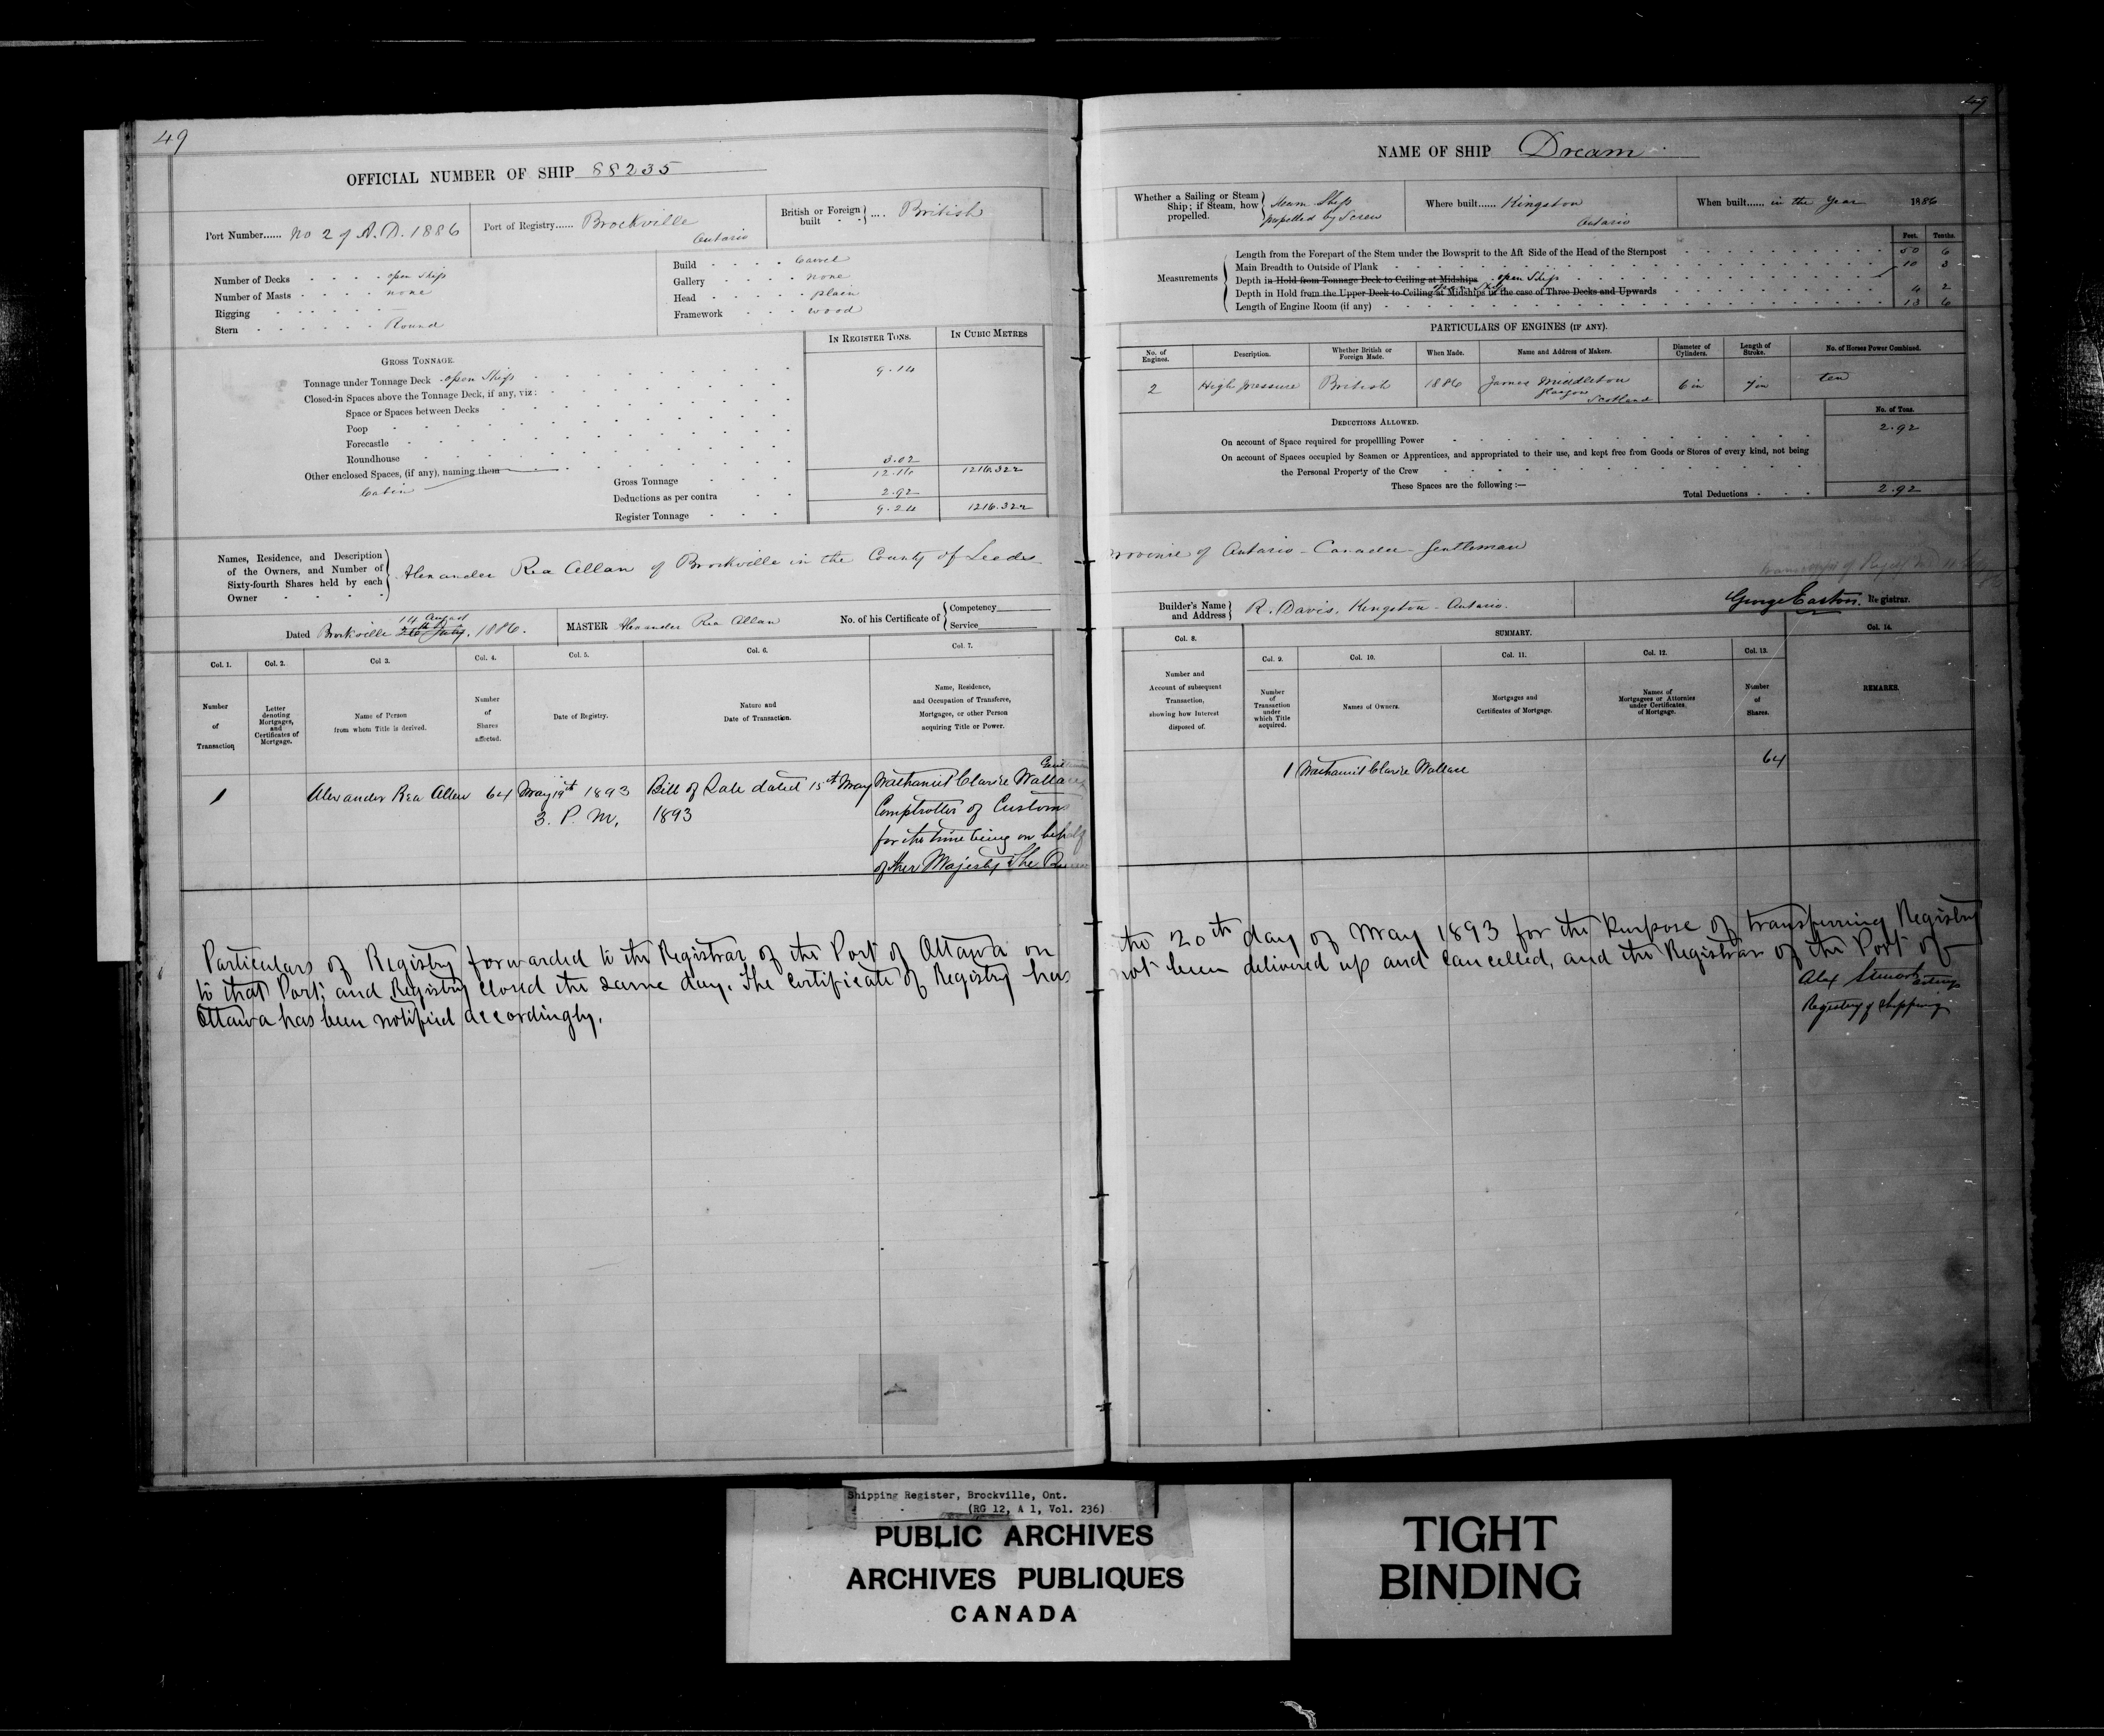 49
OFFICIAL NUMBER OF SHIP 88235
Port Number...... No 2 of A.D. 1886
Port of Registry...... Brockville
Ontario
British or Foreign built .... British
Number of Decks open Ship
Number of Masts none
Rigging —
Stern Round
Build Carvel
Gallery none
Head plain
Framework wood
IN REGISTER TONS.
IN CUBIC METRES
GROSS TONNAGE.
Tonnage under Tonnage Deck open Ship 9.14
Closed-in Spaces above the Tonnage Deck, if any, viz:
Space or Spaces between Decks
Poop
Forecastle
Roundhouse
Other enclosed Spaces, (if any), naming them 3.02
Cabin
Gross Tonnage 12.16 1216.322
Deductions as per contra 2.92
Register Tonnage 9.24 1216.322
Names, Residence, and Description
of the Owners, and Number of
Sixty-fourth Shares held by each
Owner
Alexander Rea Allan of Brockville in the County of Leeds
Dated Brockville 26th July 14 August 1886.
MASTER Alexander Rea Allan
No. of his Certificate of
Competency
Service
Col. 1.
Col. 2.
Col 3.
Col. 4.
Col. 5.
Col. 6.
Col. 7.
Number of Transaction
Letter denoting Mortgages, and Certificates of Mortgage.
Name of Person from whom Title is derived.
Number of Shares affected.
Date of Registry.
Nature and Date of Transaction.
Name, Residence, and Occupation of Transferee, Mortgagee, or other Person acquiring Title or Power.
1
Alexander Rea Allen
64
May 19th 1893
3. P. M.
Bill of Sale dated 15th May
1893
Nathaniel Clarke Wallace
Comptroller of Customs
for the time being on behalf
of Her Majesty The Queen
Particulars of Registry forwarded to the Registrar of the Port of Ottawa on
to that Port; and Registry closed the same day. The certificate of Registry has
Ottawa has been notified accordingly.
NAME OF SHIP Dream
Whether a Sailing or Steam
Ship; if Steam, how
propelled.
Steam Ship
propelled by Screw
Where built...... Kingston
Ontario
When built...... in the Year 1886
Feet. Tenths.
Measurements
Length from the Forepart of the Stem under the Bowsprit to the Aft Side of the Head of the Sternpost 50 6
Main Breadth to Outside of Plank 10 3
Depth in Hold from Tonnage Deck to Ceiling at Midships open Ship
Depth in Hold from the Upper Deck to Ceiling at Midships in the case of Three Decks and Upwards 4 2
Length of Engine Room (if any) 13 6
PARTICULARS OF ENGINES (IF ANY).
No. of Engines.
Description.
Whether British or Foreign Made.
When Made.
Name and Address of Makers.
Diameter of Cylinders.
Length of Stroke.
No. of Horses Power Combined.
2
High pressure
British
1886
James Middleton
Glasgow
Scotland
6 in
7 in
ten
No. of Tons.
DEDUCTIONS ALLOWED.
On account of Space required for propelling Power 2.92
On account of Spaces occupied by Seamen or Apprentices, and appropriated to their use, and kept free from Goods or Stores of every kind, not being
the Personal Property of the Crew
These Spaces are the following :—
Total Deductions 2.92
Province of Ontario - Canada - Gentleman
Builder's Name
and Address
R. Davis, Kingston - Ontario.
George Easton. Registrar.
Col. 8.
SUMMARY.
Col. 14.
Col. 9.
Col. 10.
Col. 11.
Col. 12.
Col. 13.
Number and Account of subsequent Transaction, showing how Interest disposed of.
Number of Transaction under which Title acquired.
Names of Owners.
Mortgages and Certificates of Mortgage.
Names of Mortgagees or Attornies under Certificates of Mortgage.
Number of Shares.
REMARKS.
1
Nathaniel Clarke Wallace
64
the 20th day of May 1893 for the Purpose of transferring Registry
not been delivered up and cancelled, and the Registrar of the Port of
Alex Stewart
Registrar of Shipping
Shipping Register, Brockville, Ont.
(RG 12, A 1, Vol. 236)
PUBLIC ARCHIVES
ARCHIVES PUBLIQUES
CANADA
TIGHT
BINDING